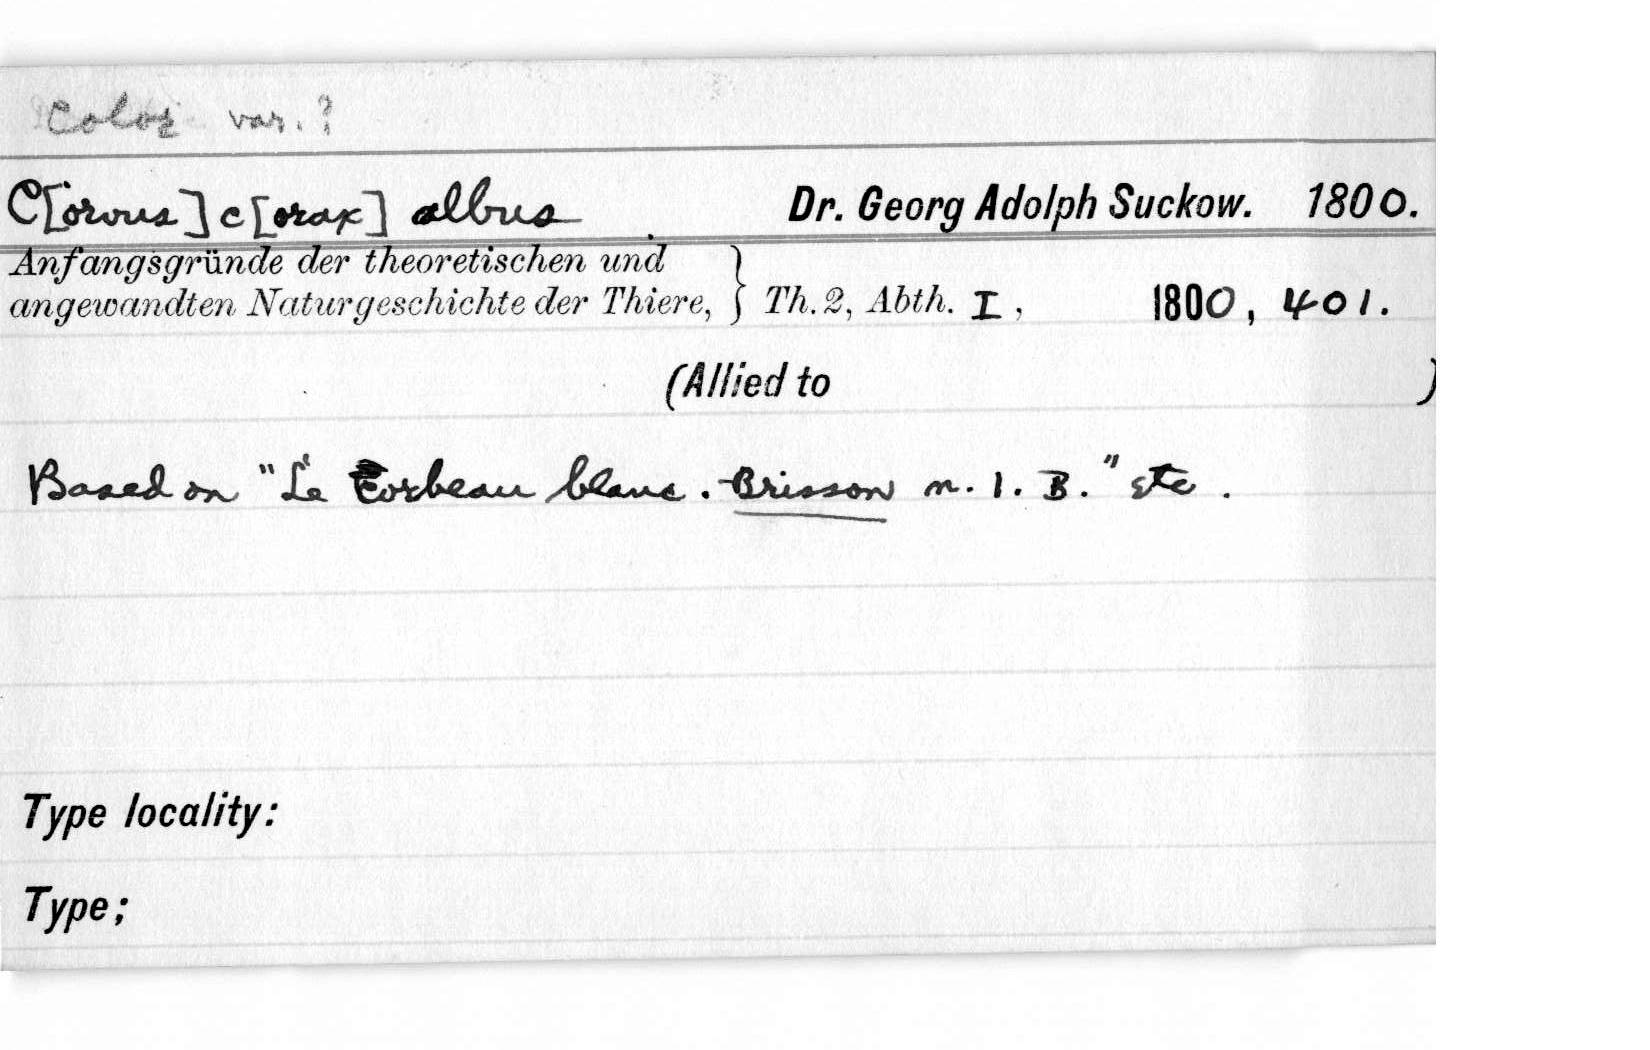 Color var.?
C[orvus] c[orax] albus. Dr. Georg Adolph Suckow. 1800.
Anfangsgründe der theoretischen und
angewandten Naturgeschichte der Thiere, } Th. 2, Abth. I, 1800, 401.
(Allied to )
Based on "Le Corbeau blanc. Brisson n. 1. B." etc.
Type locality:
Type;